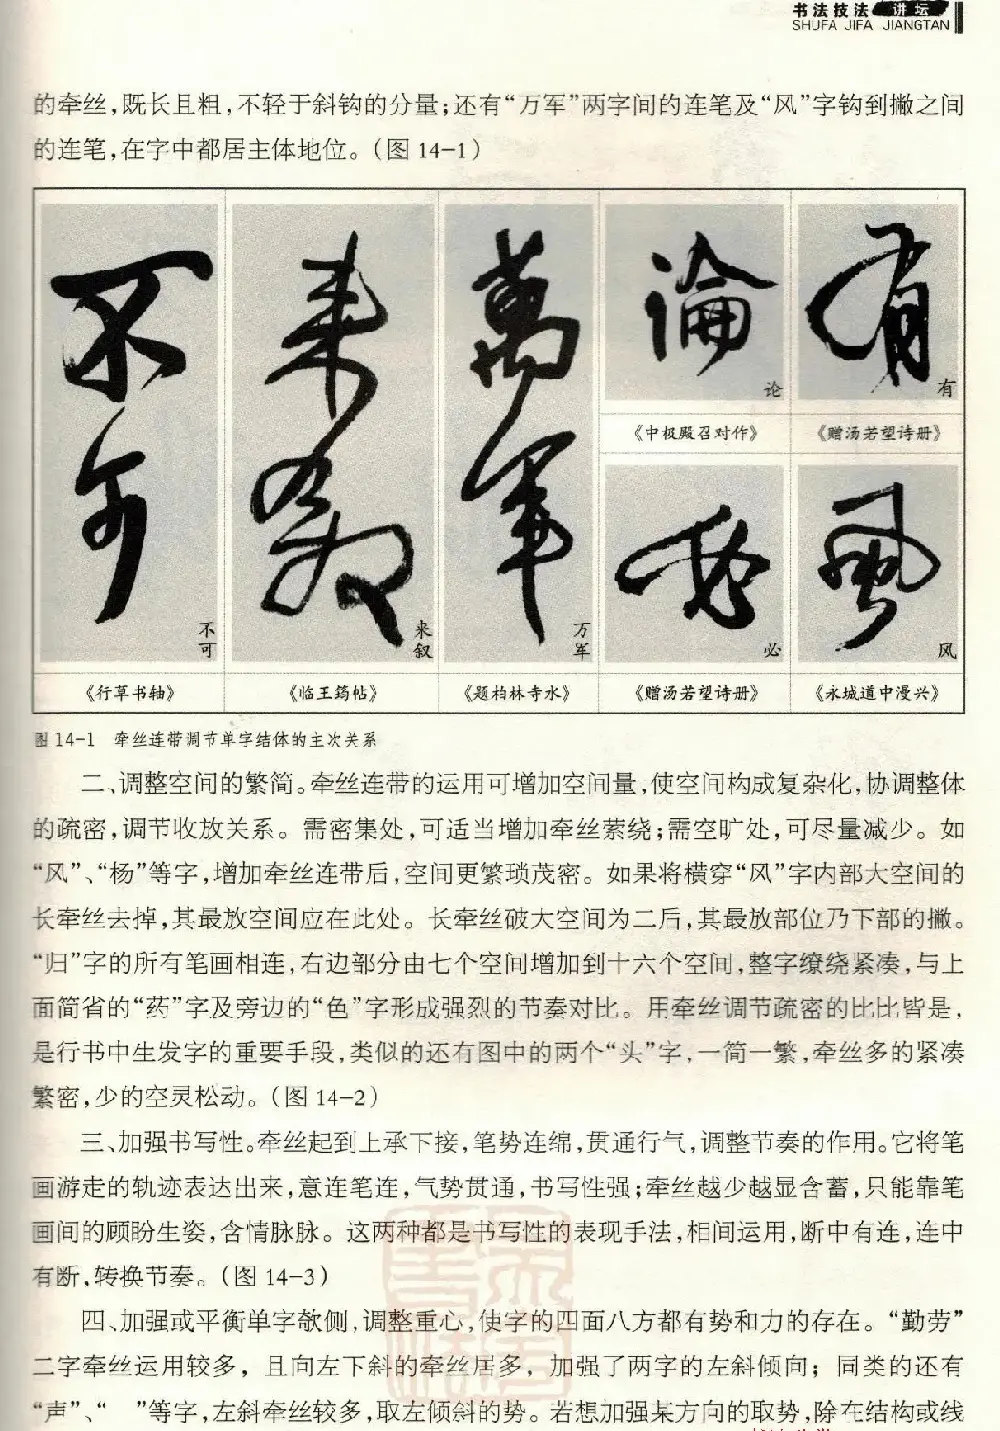 书法技法 讲坛
SHUFA JIFA JIANGTAN
的牵丝，既长且粗，不轻于斜钩的分量；还有“万军”两字间的连笔及“风”字钩到撇之间
的连笔，在字中都居主体地位。（图 14-1）
不可
来叙
万军
论
有
《中极殿召对作》
《赠汤若望诗册》
必
风
《行草书轴》
《临王筠帖》
《题柏林寺水》
《赠汤若望诗册》
《永城道中漫兴》
图 14-1 牵丝连带调节单字结体的主次关系
二、调整空间的繁简。牵丝连带的运用可增加空间量，使空间构成复杂化，协调整体
的疏密，调节收放关系。需密集处，可适当增加牵丝萦绕；需空旷处，可尽量减少。如
“风”、“杨”等字，增加牵丝连带后，空间更繁琐茂密。如果将横穿“风”字内部大空间的
长牵丝去掉，其最放空间应在此处。长牵丝破大空间为二后，其最放部位乃下部的撇。
“归”字的所有笔画相连，右边部分由七个空间增加到十六个空间，整字缭绕紧凑，与上
面简省的“药”字及旁边的“色”字形成强烈的节奏对比。用牵丝调节疏密的比比皆是，
是行书中生发字的重要手段，类似的还有图中的两个“头”字，一简一繁，牵丝多的紧凑
繁密，少的空灵松动。（图 14-2）
三、加强书写性。牵丝起到上承下接，笔势连绵，贯通行气，调整节奏的作用。它将笔
画游走的轨迹表达出来，意连笔连，气势贯通，书写性强；牵丝越少越显含蓄，只能靠笔
画间的顾盼生姿，含情脉脉。这两种都是书写性的表现手法，相间运用，断中有连，连中
有断，转换节奏。（图 14-3）
四、加强或平衡单字欹侧，调整重心，使字的四面八方都有势和力的存在。“勤劳”
二字牵丝运用较多，且向左下斜的牵丝居多，加强了两字的左斜倾向；同类的还有
“声”、“ ”等字，左斜牵丝较多，取左倾斜的势。若想加强某方向的取势，除在结构或线